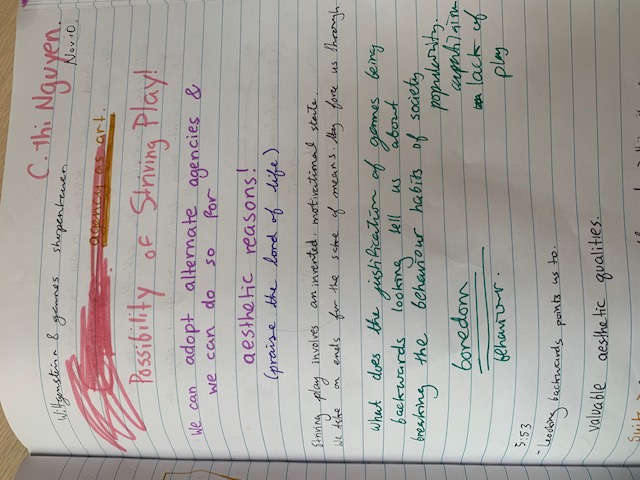 C. Thi Nguyen.
Wittgenstein & games shopenhauer
Nov 10.
agency as art.
Possibility of Striving Play!
We can adopt alternate agencies &
we can do so for
aesthetic reasons!
(praise the lord of life)
Striving play involves an invented. motivational state.
We take on ends for the sake of means. they force us through
what does the justification of games being
backwards looking tell us about
breaking the behaviour habits of society
popularity.
boredom
lack of
behaviour.
play
5:53
- Looking backwards points us to.
valuable aesthetic qualities.